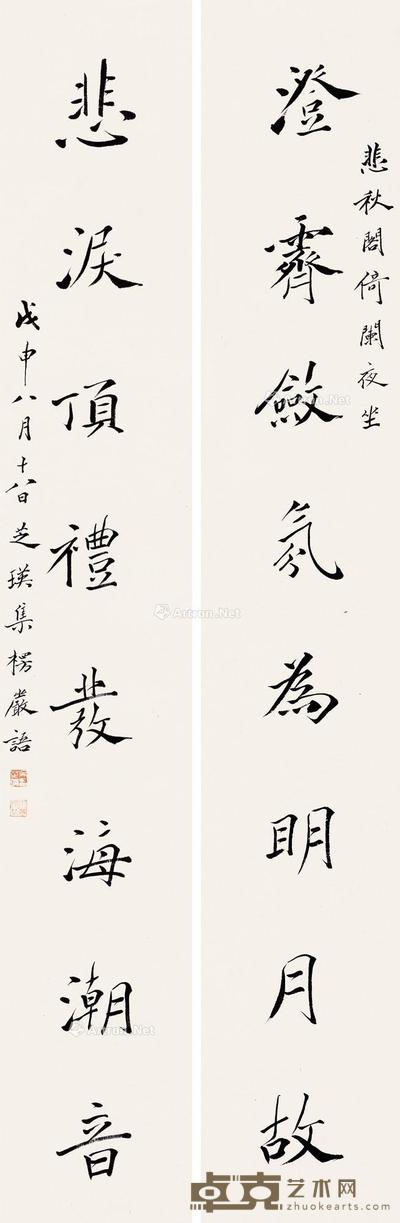 悲秋閣倚闌夜坐
澄霽斂氛為明月故
悲淚頂禮發海潮音
戊申八月十八日芝瑛集楞嚴語
Artron.Net
Artron.Net
Artron.Net
Artron.Net
卓克艺术网
www.zhuokearts.com